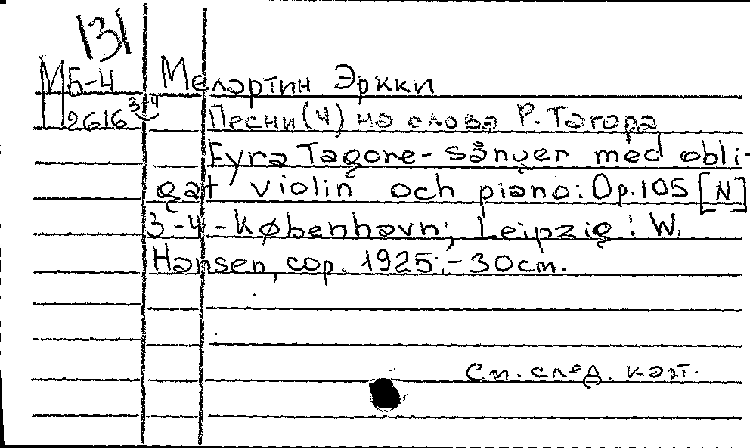 131
М5-4 Мелартин Эркки
L2616 3-4 Песни (4) на слова Р. Тагора
Fyra Tagore-sånger med obli-
gat violin och piano: Op. 105 [N]
3-4 - København; Leipzig: W.
Hansen, cop. 1925. - 30 cm.
См. след. кат.